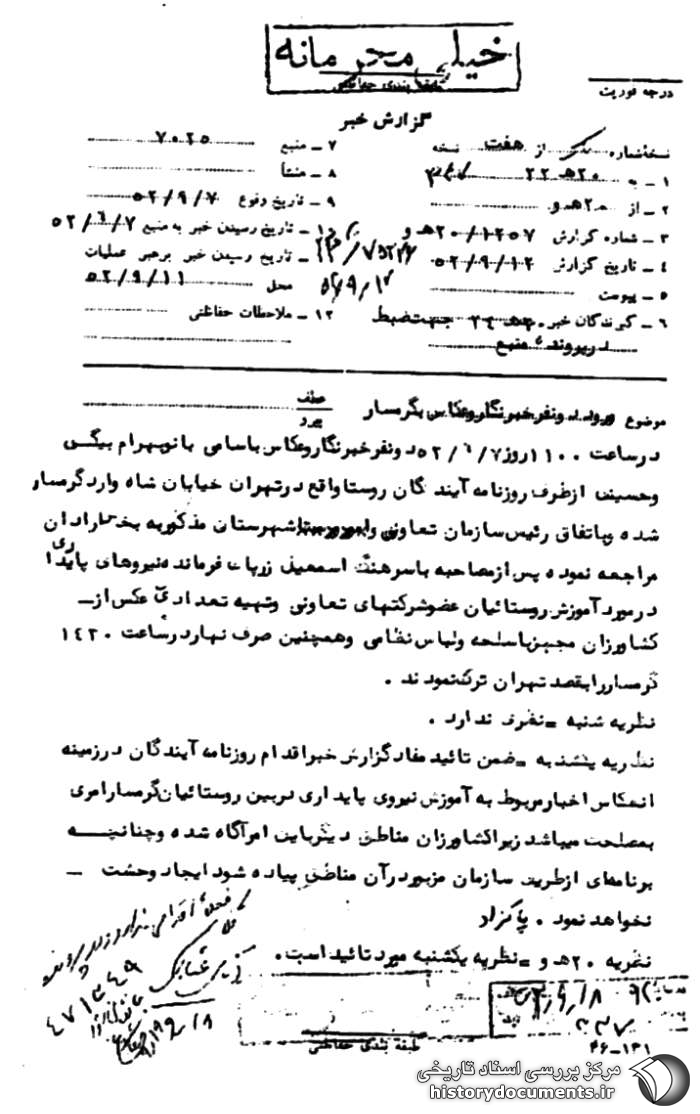 خیلی محرمانه
طبقه بندی حفاظتی
درجه فوریت
گزارش خبر
نسخه شماره از هفت نسخه
۱ ـ به ۲۰ه ۲۲
۲ ـ از ۲۰ه و
۳ ـ شماره گزارش ۲۰/۱۲۵۷ه و
۴ ـ تاریخ گزارش ۵۲/۹/۱۲
۵ ـ پیوست
۶ ـ گیرندگان خبر جهت ضبط
در پرونده منبع
۷ ـ منبع ۷۰۲۵
۸ ـ منشأ
۹ ـ تاریخ وقوع ۵۲/۹/۷
۱۰ ـ تاریخ رسیدن خبر به منبع ۵۲/۹/۷
ـ تاریخ رسیدن خبر برهبر عملیات
محل ۵۲/۹/۱۱
۱۲ ـ ملاحظات حفاظتی
موضوع ورود دونفر خبرنگار و عکاس بگرمسار
عطف
پیرو
در ساعت ۱۱۰۰ روز ۵۲/۹/۷ دونفر خبرنگار و عکاس باسامی بانو بهرام بیگی
و حسینی از طرف روزنامه آیندگان روستا واقع در تهران خیابان شاه وارد گرمسار
شده و باتفاق رئیس سازمان تعاونی شهرستان مذکور به بخشداری آرادان
مراجعه نموده پس از مصاحبه با سرهنگ اسمعیل فرمانده نیروهای پایداری
در مورد آموزش روستائیان عضو شرکتهای تعاونی و تهیه تعدادی عکس از ـ
کشاورزان مجهز با سلحه ولباس نظامی و همچنین صرف نهار در ساعت ۱۴۳۰
گرمسار را بقصد تهران ترک نمودند .
نظریه شنبه ـ نظری ندارد .
نظریه یکشنبه ـ ضمن تائید مفاد گزارش خبر اقدام روزنامه آیندگان در زمینه
انعکاس اخبار مربوط به آموزش نیروی پایداری در بین روستائیان گرمسار امری
بمصلحت میباشد زیرا کشاورزان مناطق دیگر با این امر آگاه شده و چنانچه
برنامه‌ای از طریق سازمان مزبور در آن مناطق پیاده شود ایجاد وحشت ـ
نخواهد نمود . پاکزاد
نظریه ۲۰ه و ـ نظریه یکشنبه مورد تائید است .
۴۷۱۳۴۹
طبقه بندی حفاظتی
۴۶-۱۳۱
مرکز بررسی اسناد تاریخی
historydocuments.ir